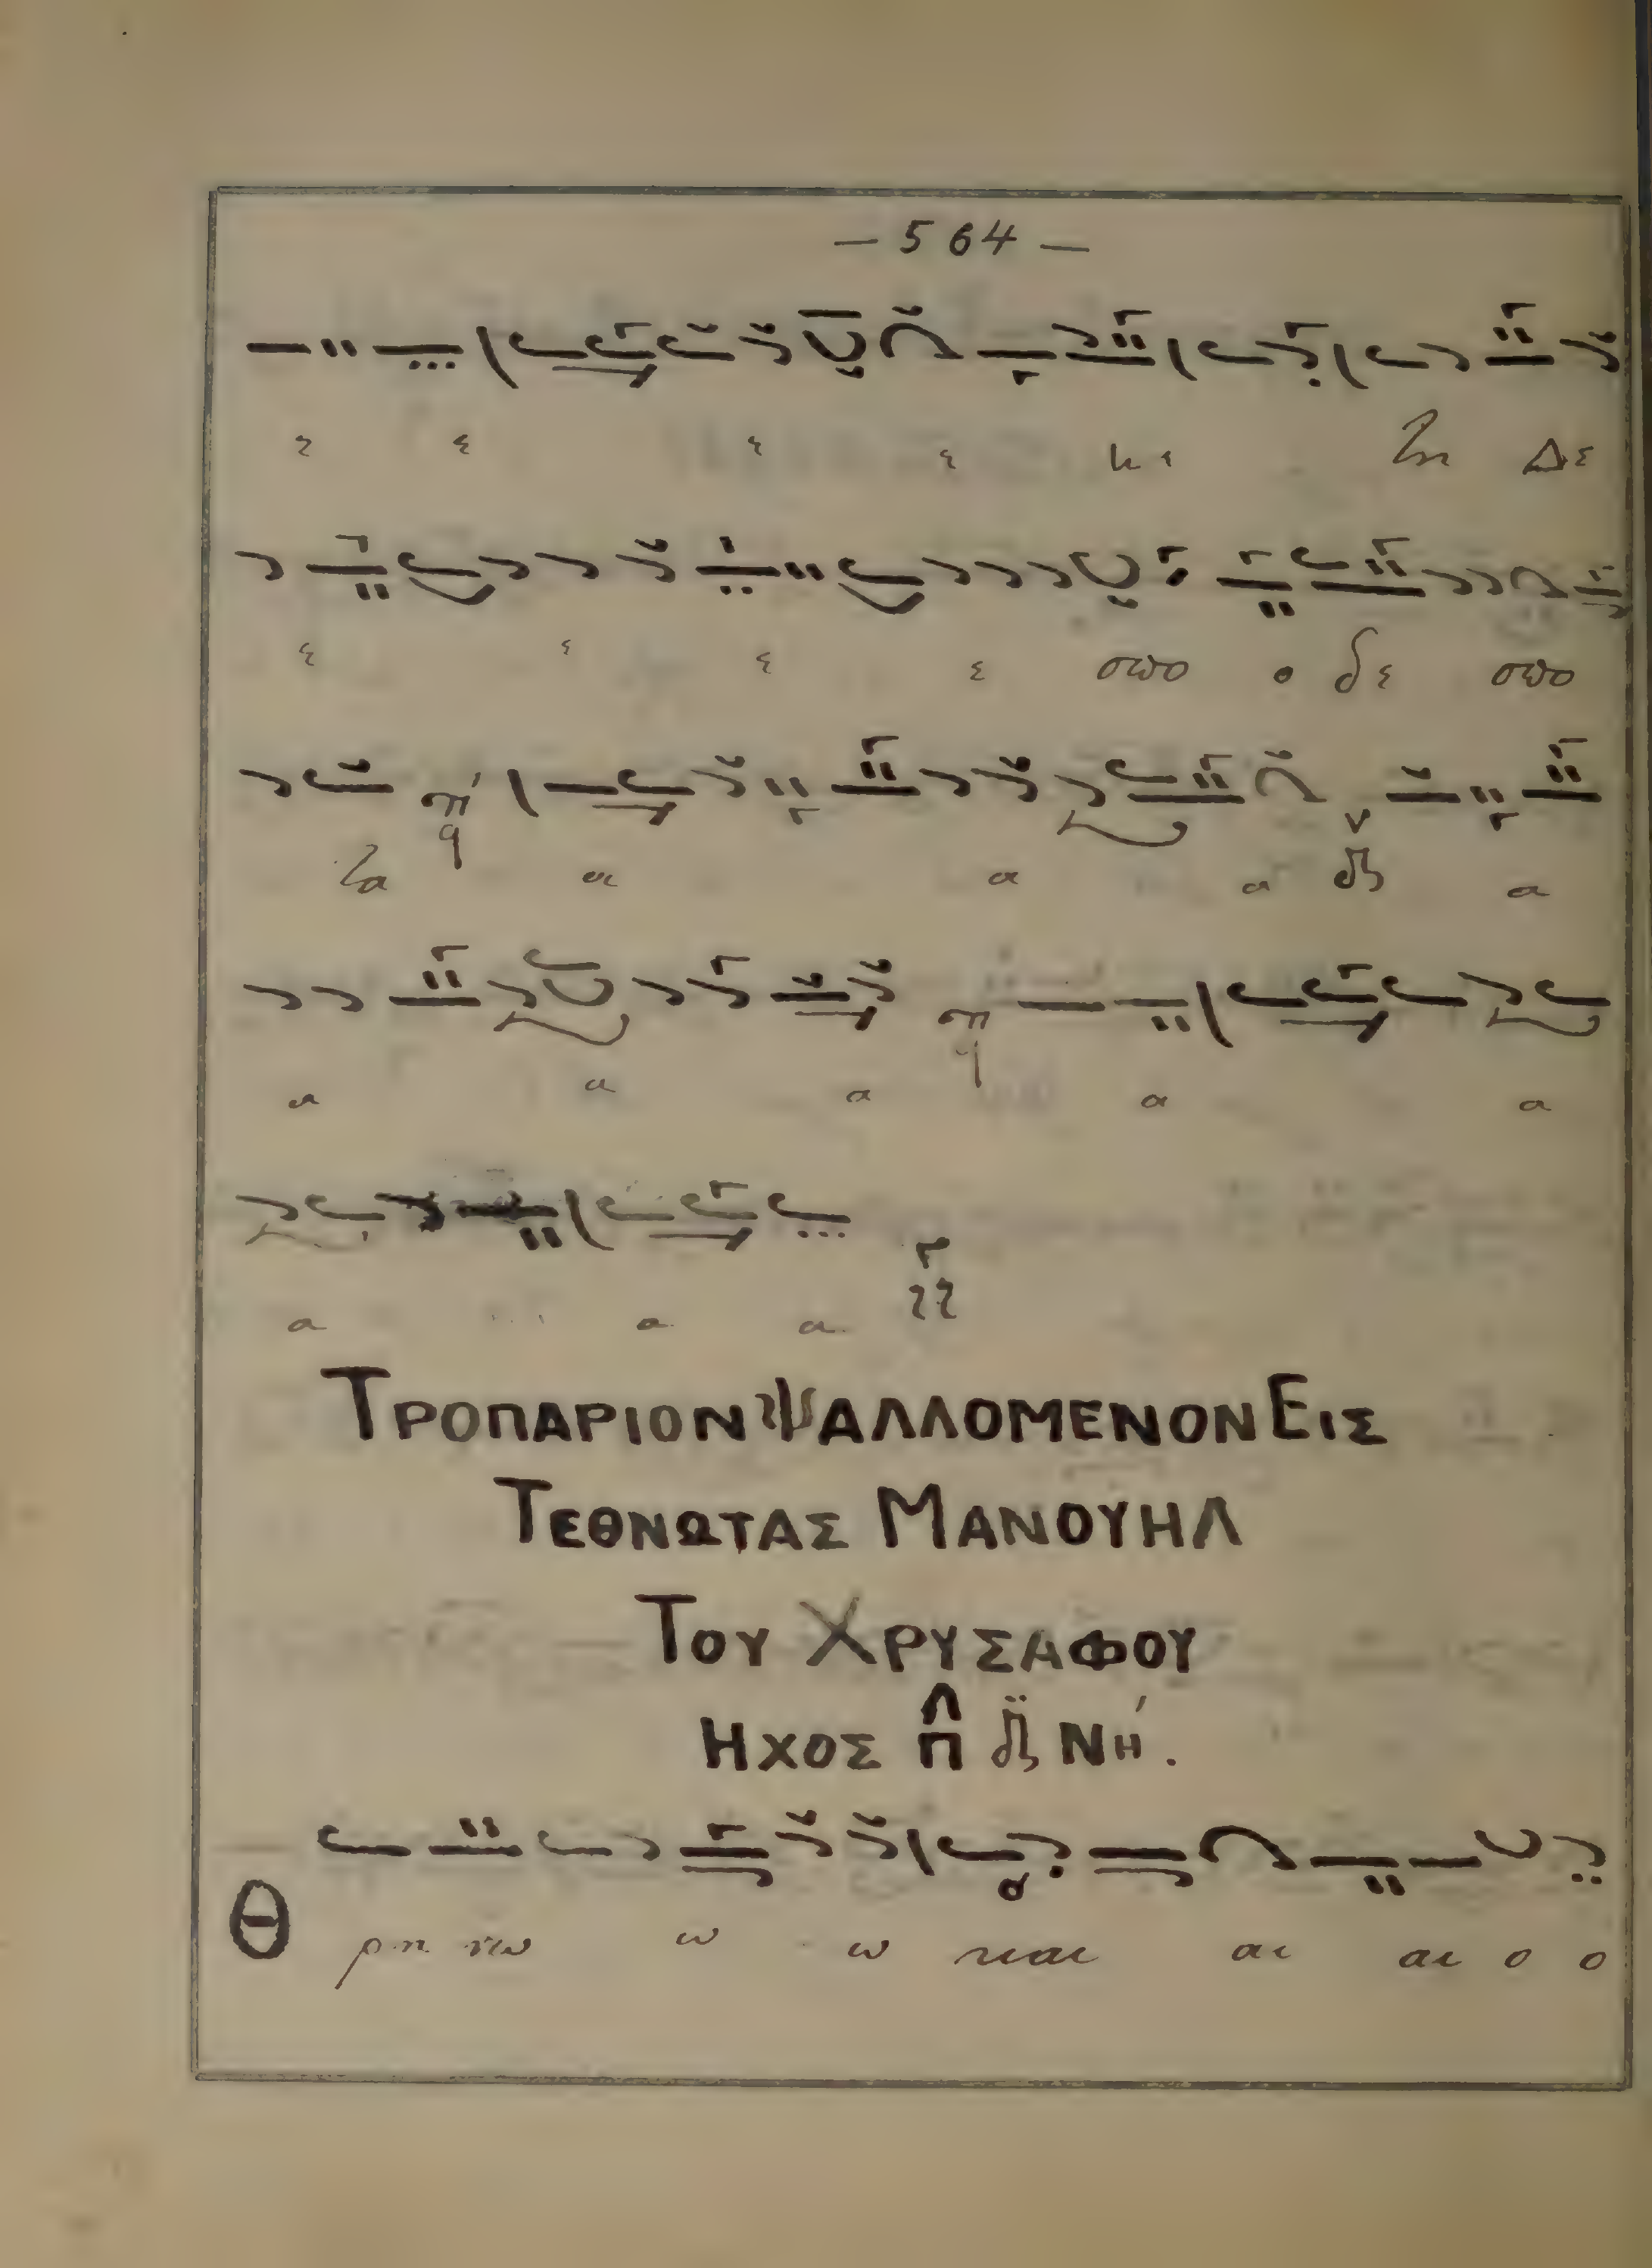 — 564 —
ε ε ε ε κι τη Δε
ε ε ε ε σπο ο δε σπο
τα α α α α
α α α α α
α α α
ΤΡΟΠΑΡΙΟΝ ΨΑΛΛΟΜΕΝΟΝ ΕΙΣ
ΤΕΘΝΩΤΑΣ ΜΑΝΟΥΗΛ
ΤΟΥ ΧΡΥΣΑΦΟΥ
ΗΧΟΣ Νη.
Θ ρη νω ω ω και αι αι ο ο